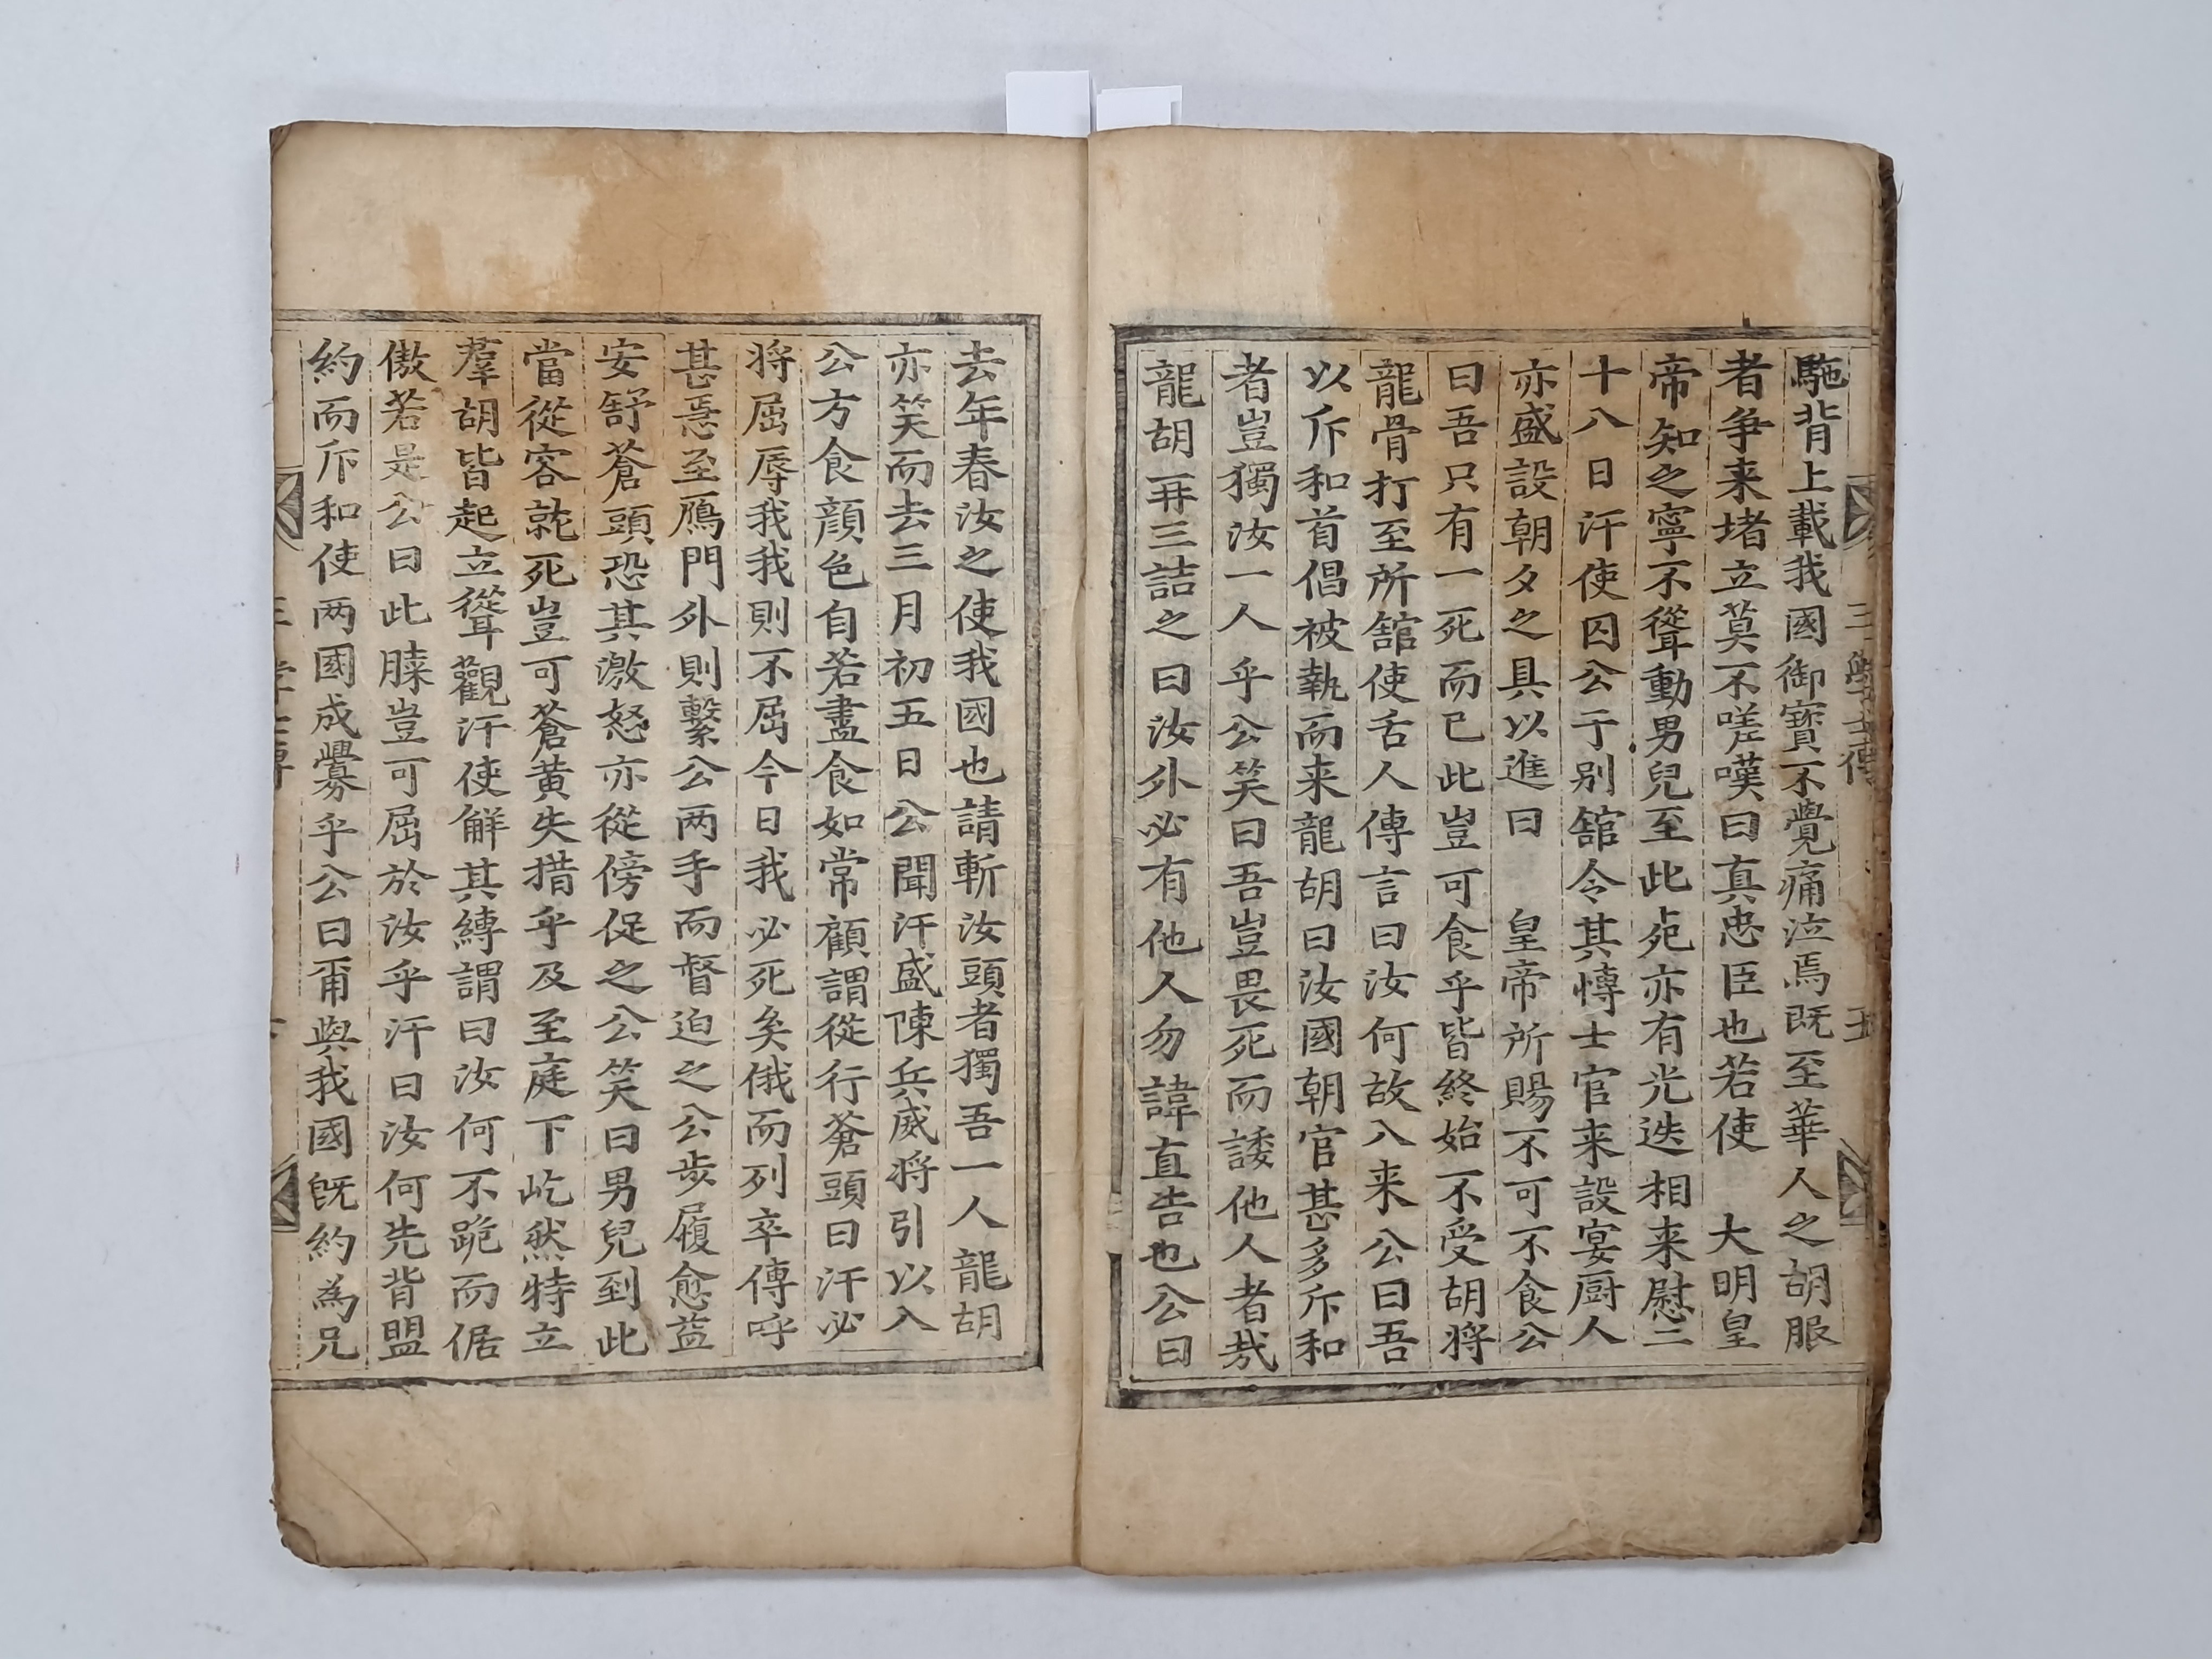 三學士傳
五
駞背上載我國御寶不覺痛泣焉既至華人之胡服
者爭来堵立莫不嗟嘆曰真忠臣也若使　大明皇
帝知之寧不聳動男兒至此死亦有光迭相来慰二
十八日汗使囚公于別舘令其愽士官来設宴厨人
亦盛設朝夕之具以進曰　皇帝所賜不可不食公
曰吾只有一死而已此豈可食乎皆終始不受胡将
龍骨打至所舘使舌人傳言曰汝何故入来公曰吾
以斥和首倡被執而来龍胡曰汝國朝官甚多斥和
者豈獨汝一人乎公笑曰吾豈畏死而諉他人者㦲
龍胡再三詰之曰汝外必有他人勿諱直告也公曰
去年春汝之使我國也請斬汝頭者獨吾一人龍胡
亦笑而去三月初五日公聞汗盛陳兵威将引以入
公方食顔色自若盡食如常顧謂從行蒼頭曰汗必
将屈辱我我則不屈今日我必死矣俄而列卒傳呼
甚惡至鴈門外則繫公两手而督迫之公步履愈益
安舒蒼頭恐其激怒亦從傍促之公笑曰男兒到此
當從容就死豈可蒼黄失措乎及至庭下屹然特立
羣胡皆起立聳觀汗使觧其縛謂曰汝何不跪而倨
傲若是公曰此膝豈可屈於汝乎汗曰汝何先背盟
約而斥和使两國成釁乎公曰甭與我國既約為兄